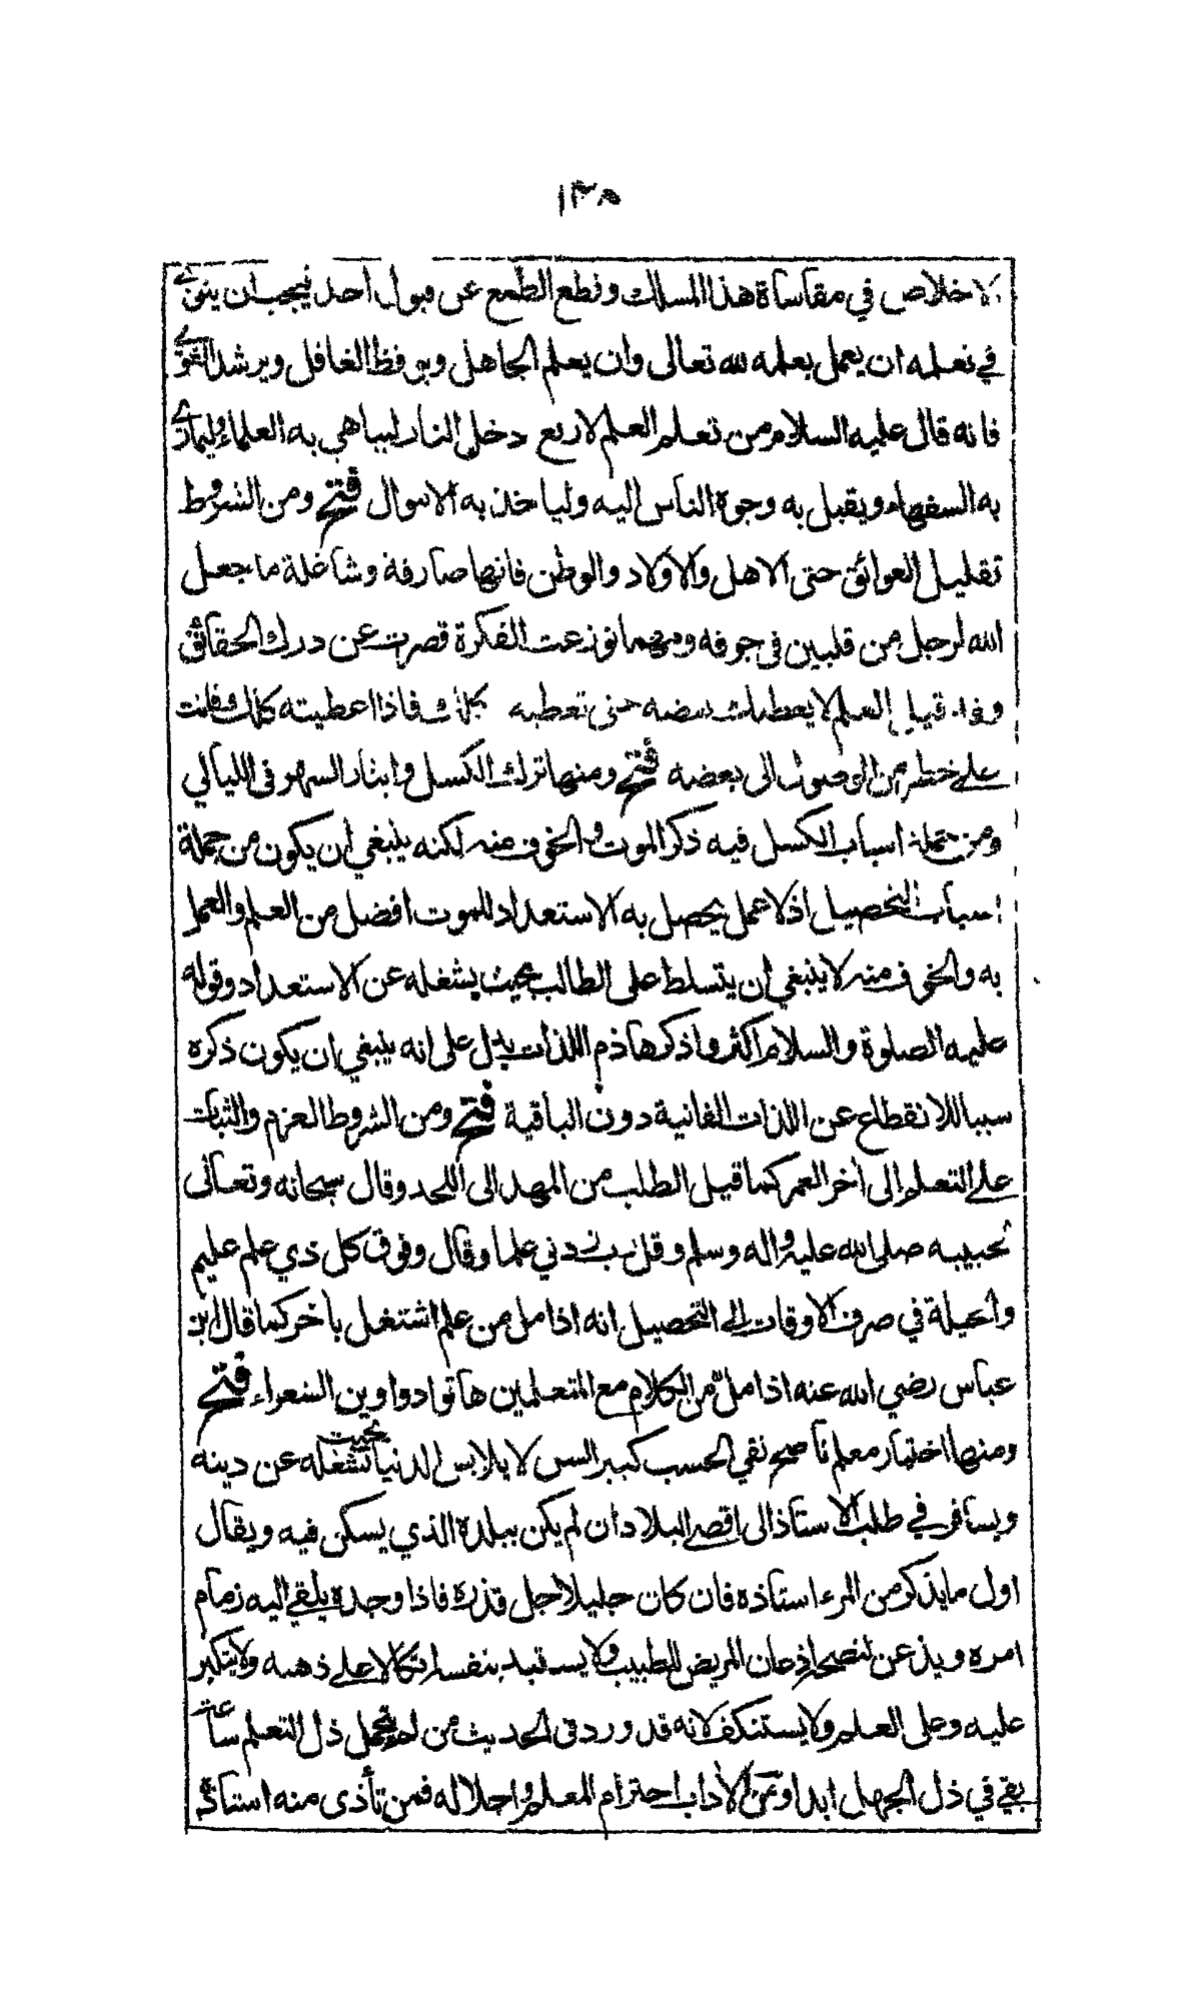 ١٣٨
الاخلاص في مقاساة هذا المسلك وقطع الطمع عن قبول احد فيجب ان ينوي
في تعلمه ان يعمل بعلمه لله تعالى وان يعلم الجاهل ويوقظ الغافل ويرشد الغوي
فانه قال عليه السلام من تعلم العلم لاربع دخل النار ليباهي به العلماء وليماري
به السفهاء ويقبل به وجوه الناس اليه وليأخذ به الاموال فتح ومن الشروط
تقليل العوائق حتى الاهل والاولاد والوطن فانها صارفة وشاغلة ما جعل
الله لرجل من قلبين في جوفه ومهما توزعت الفكرة قصرت عن درك الحقائق
وقد قيل العلم لا يعطيك بعضه حتى تعطيه كلك فاذا اعطيته كلك فانت
على خطر من الوصول الى بعضه فتح ومنها ترك الكسل وايثار السهر في الليالي
ومن جملة اسباب الكسل فيه ذكر الموت والخوف منه لكنه ينبغي ان يكون من جملة
اسباب التحصيل اذ لا عمل يحصل به الاستعداد للموت افضل من العلم والعمل
به والخوف منه لا ينبغي ان يتسلط على الطالب بحيث يشغله عن الاستعداد وقوله
عليه الصلوة والسلام اكثروا ذكر هاذم اللذات يدل على انه ينبغي ان يكون ذكره
سببا للانقطاع عن اللذات الفانية دون الباقية فتح ومن الشروط العزم والثبات
على التعلم الى أخر العمر كما قيل الطلب من المهد الى اللحد وقال سبحانه وتعالى
لحبيبه صلى الله عليه واله وسلم وقل رب زدني علما وقال وفوق كل ذي علم عليم
والحيلة في صرف الاوقات الى التحصيل انه اذا مل من علم اشتغل بأخر كما قال ابن
عباس رضي الله عنه اذا مل من الكلام مع المتعلمين هاتوا دواوين الشعراء فتح
ومنها اختيار معلم ناصح نقي الحسب كبير السن لا يلابس الدنيا بحيث تشغله عن دينه
ويسافر في طلب الاستاذ الى اقصى البلاد ان لم يكن ببلدة الذي يسكن فيه ويقال
اول ما يذكر من المرء استاذه فان كان جليلا جل قدره فاذا وجده يلقي اليه زمام
امره ويذعن لنصحه اذعان المريض للطبيب ولا يستبد بنفسه اتكالا على ذهنه ولا يتكبر
عليه وعلى العلم ولا يستنكف لانه قد ورد في الحديث من لم يتحمل ذل التعلم ساعة
بقي في ذل الجهل ابدا ومن الأداب احترام المعلم واجلاله فمن تأذى منه استاذه